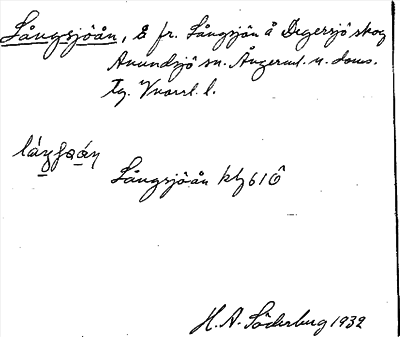 Långsjöån, å fr. Långsjön å Degersjö skog
Anundsjö sn. Ångerml. n. doms.
Tg. l.
Långsjöån kbl 61ö
H. A. Söderberg 1932